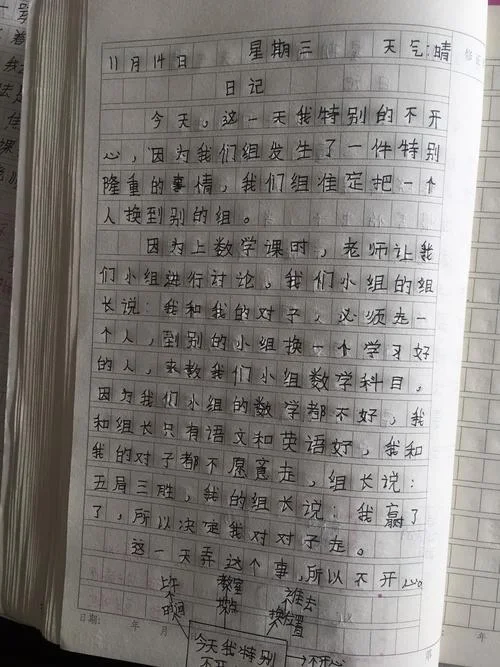 11月14日 星期三 天气:晴
日记
今天，这一天我特别的不开
心，因为我们组发生了一件特别
隆重的事情，我们组准定把一个
人换到别的组。
因为上数学课时，老师让我
们小组进行讨论，我们小组的组
长说：我和我的对子，必须走一
个人，到别的小组换一个学习好
的人，来教我们小组数学科目，
因为我们小组的数学都不好，我
和组长只有语文和英语好，我和
我的对子都不愿意走，组长说：
五局三胜，我的组长说：我赢了
了，所以决定我对对子走。
这一天弄这个事，所以不开心。
上午 教室 谁去
时间 地点 换位置
日期： 年 月
今天我特别
不开 不开心
年